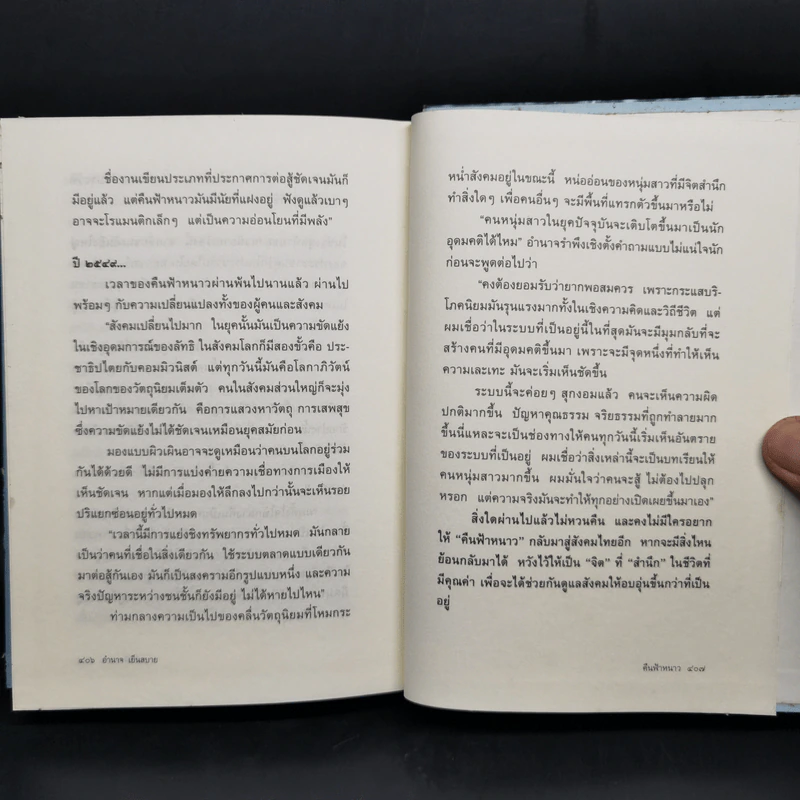 ชื่องานเขียนประเภทที่ประกาศการต่อสู้ชัดเจนมันก็
มีอยู่แล้ว แต่คืนฟ้าหนาวมันมีนัยที่แฝงอยู่ ฟังดูแล้วเบาๆ
อาจจะโรแมนติกเล็กๆ แต่เป็นความอ่อนโยนที่มีพลัง”
ปี ๒๕๔๙...
เวลาของคืนฟ้าหนาวผ่านพ้นไปนานแล้ว ผ่านไป
พร้อมๆ กับความเปลี่ยนแปลงทั้งของผู้คนและสังคม
“สังคมเปลี่ยนไปมาก ในยุคนั้นมันเป็นความขัดแย้ง
ในเชิงอุดมการณ์ของลัทธิ ในสังคมโลกก็มีสองขั้วคือ ประ-
ชาธิปไตยกับคอมมิวนิสต์ แต่ทุกวันนี้มันคือโลกาภิวัตน์
ของโลกของวัตถุนิยมเต็มตัว คนในสังคมส่วนใหญ่ก็จะมุ่ง
ไปหาเป้าหมายเดียวกัน คือการแสวงหาวัตถุ การเสพสุข
ซึ่งความขัดแย้งไม่ได้ชัดเจนเหมือนยุคสมัยก่อน
มองแบบผิวเผินอาจจะดูเหมือนว่าคนบนโลกอยู่ร่วม
กันได้ด้วยดี ไม่มีการแบ่งค่ายความเชื่อทางการเมืองให้
เห็นชัดเจน หากแต่เมื่อมองให้ลึกลงไปกว่านั้นจะเห็นรอย
ปริแยกซ่อนอยู่ทั่วไปหมด
“เวลานี้มีการแย่งชิงทรัพยากรทั่วไปหมด มันกลาย
เป็นว่าคนที่เชื่อในสิ่งเดียวกัน ใช้ระบบตลาดแบบเดียวกัน
มาต่อสู้กันเอง มันก็เป็นสงครามอีกรูปแบบหนึ่ง และความ
จริงปัญหาระหว่างชนชั้นก็ยังมีอยู่ ไม่ได้หายไปไหน”
ท่ามกลางความเป็นไปของคลื่นวัตถุนิยมที่โหมกระ
๔๐๖ อำนาจ เย็นสบาย
หน่ำสังคมอยู่ในขณะนี้ หน่ออ่อนของหนุ่มสาวที่มีจิตสำนึก
ทำสิ่งใดๆ เพื่อคนอื่นๆ จะมีพื้นที่แทรกตัวขึ้นมาหรือไม่
“คนหนุ่มสาวในยุคปัจจุบันจะเติบโตขึ้นมาเป็นนัก
อุดมคติได้ไหม” อำนาจรำพึงเชิงตั้งคำถามแบบไม่แน่ใจนัก
ก่อนจะพูดต่อไปว่า
“คงต้องยอมรับว่ายากพอสมควร เพราะกระแสบริ-
โภคนิยมมันรุนแรงมากทั้งในเชิงความคิดและวิถีชีวิต แต่
ผมเชื่อว่าในระบบที่เป็นอยู่นี้ในที่สุดมันจะมีมุมกลับที่จะ
สร้างคนที่มีอุดมคติขึ้นมา เพราะจะมีจุดหนึ่งที่ทำให้เห็น
ความเละเทะ มันจะเริ่มเห็นชัดขึ้น
ระบบนี้จะค่อยๆ สุกงอมแล้ว คนจะเห็นความผิด
ปกติมากขึ้น ปัญหาคุณธรรม จริยธรรมที่ถูกทำลายมาก
ขึ้นนี่แหละจะเป็นช่องทางให้คนทุกวันนี้เริ่มเห็นอันตราย
ของระบบที่เป็นอยู่ ผมเชื่อว่าสิ่งเหล่านี้จะเป็นบทเรียนให้
คนหนุ่มสาวมากขึ้น ผมมั่นใจว่าคนจะสู้ ไม่ต้องไปปลุก
หรอก แต่ความจริงมันจะทำให้ทุกอย่างเปิดเผยขึ้นมาเอง”
สิ่งใดผ่านไปแล้วไม่หวนคืน และคงไม่มีใครอยาก
ให้ “คืนฟ้าหนาว” กลับมาสู่สังคมไทยอีก หากจะมีสิ่งไหน
ย้อนกลับมาได้ หวังไว้ให้เป็น “จิต” ที่ “สำนึก” ในชีวิตที่
มีคุณค่า เพื่อจะได้ช่วยกันดูแลสังคมให้อบอุ่นขึ้นกว่าที่เป็น
อยู่
คืนฟ้าหนาว ๔๐๗